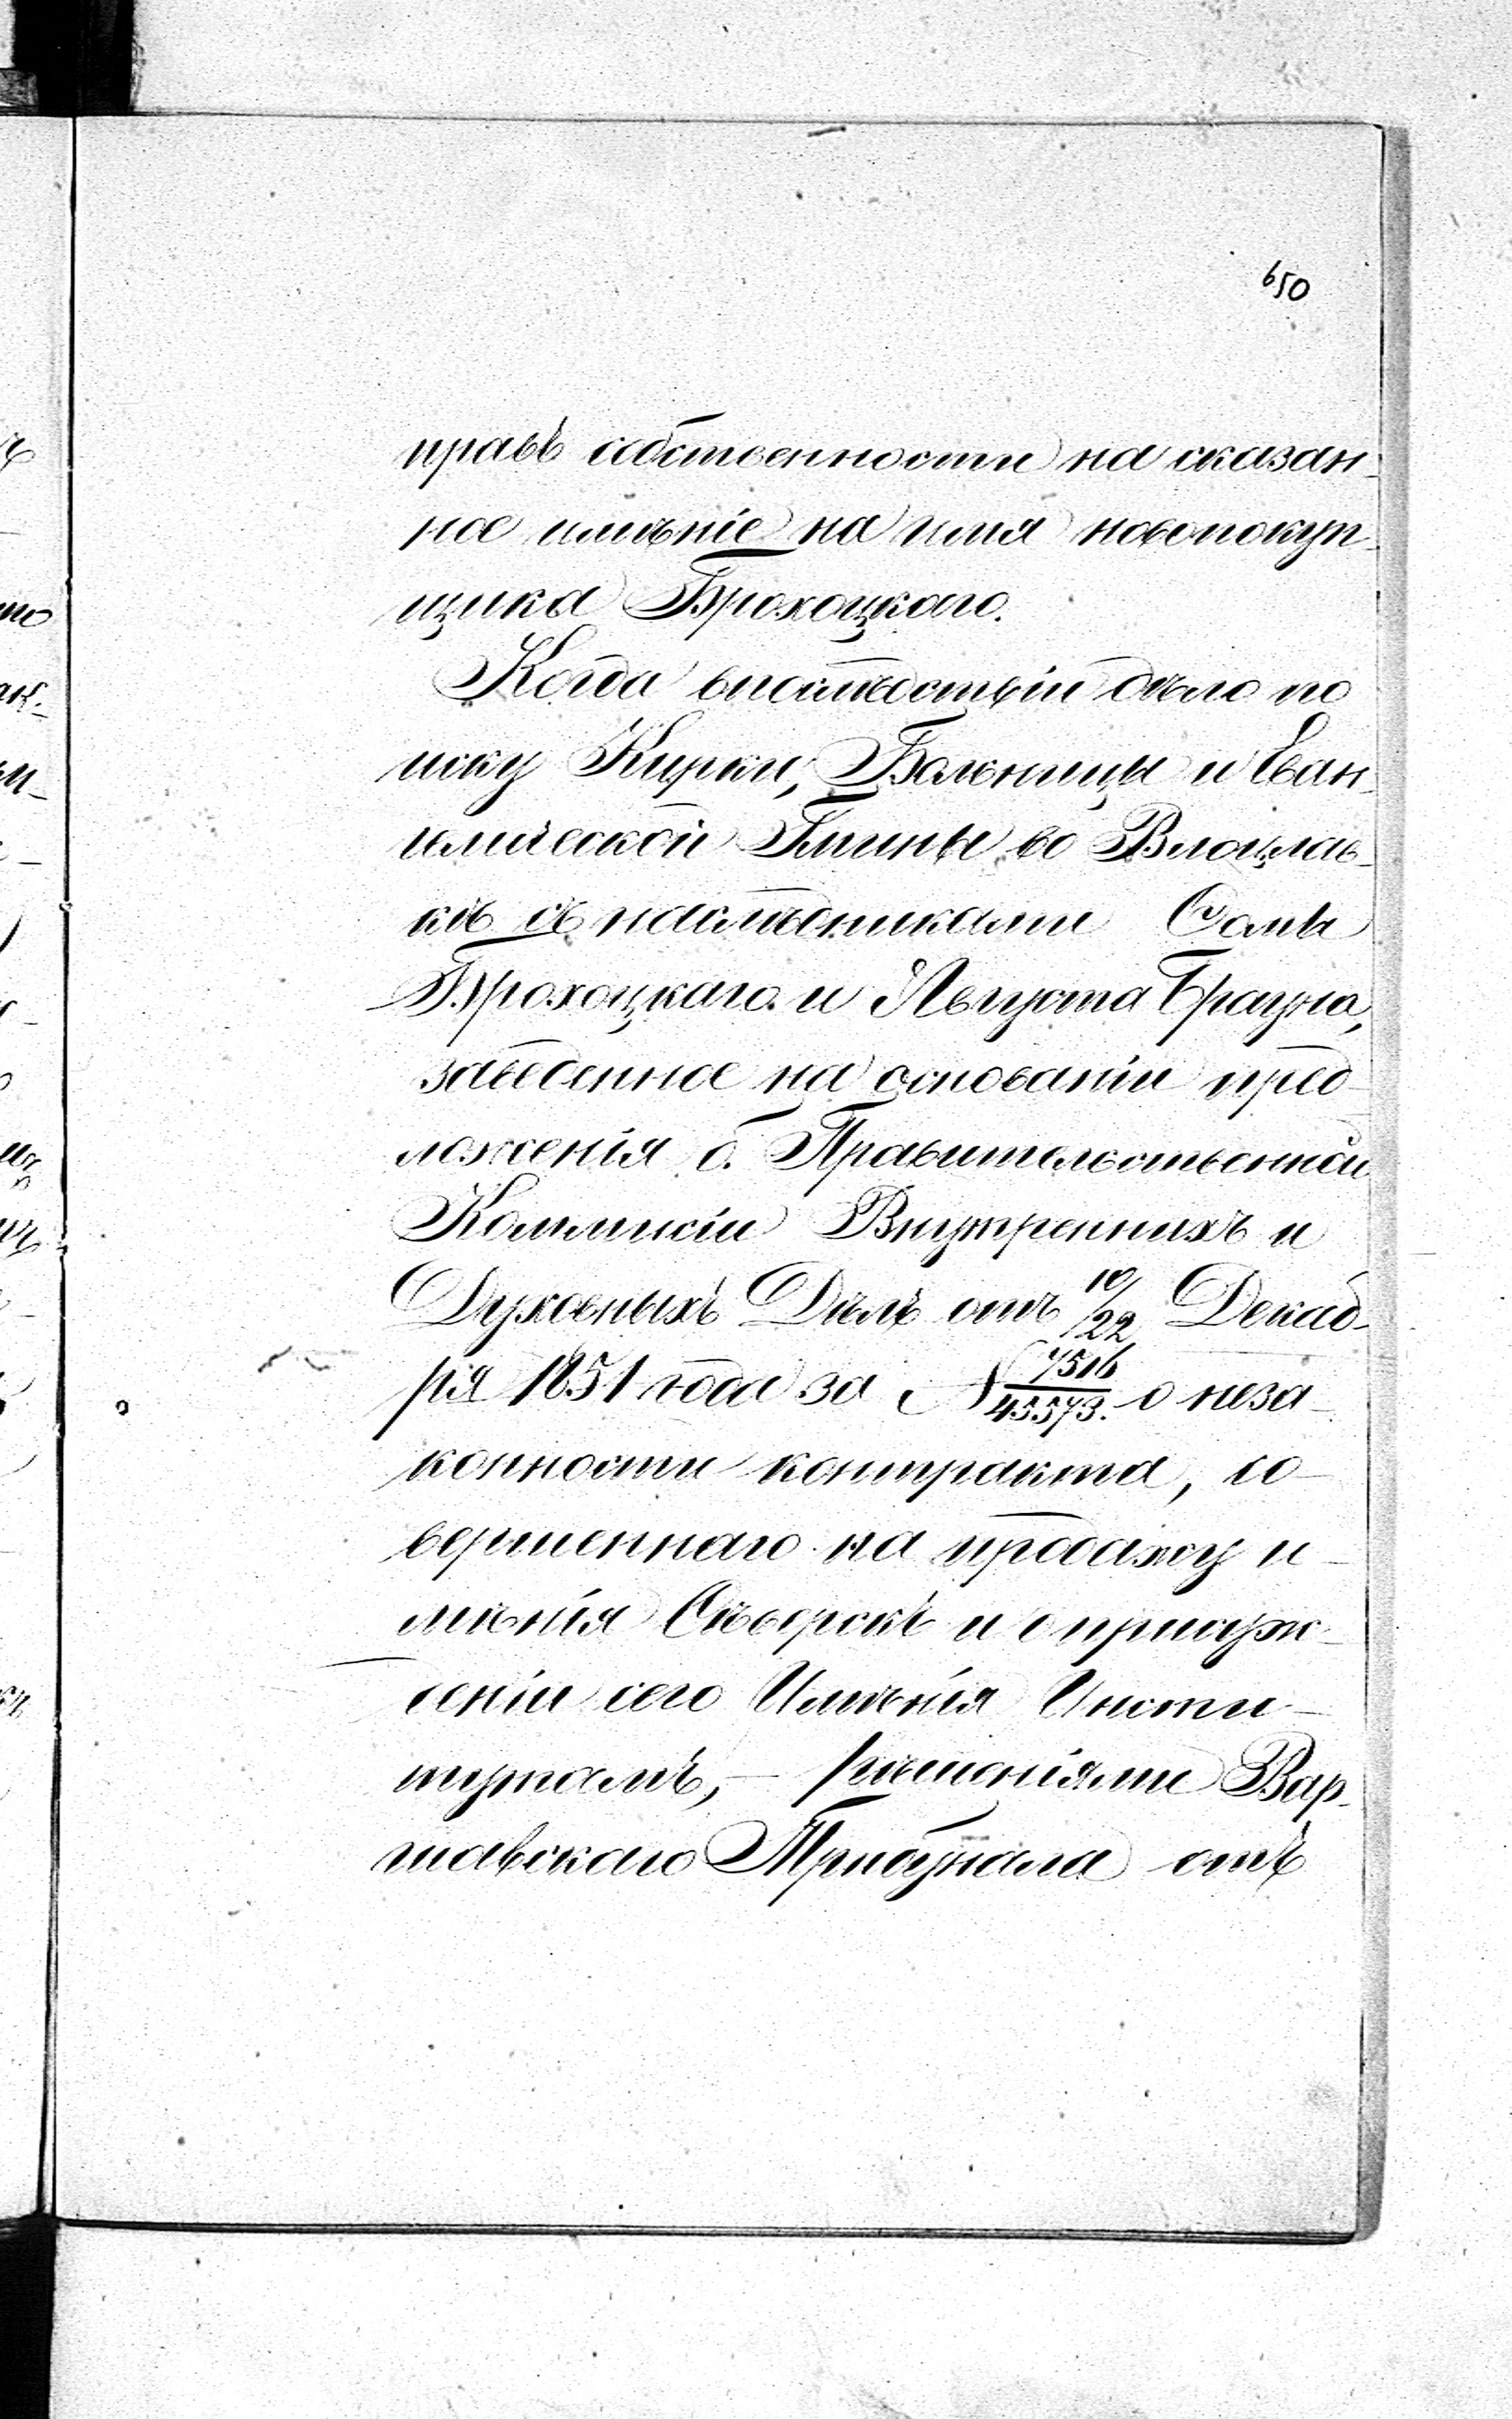 650
правъ собственности на сказан-
ное имѣніе на имя новопокуп-
щика Брохоцкаго.
Когда впослѣдствіи дѣло по
иску Кирки, Больницы и Еван-
гелической Гмины во Влоцлав-
кѣ съ наслѣдниками Фомы
Брохоцкаго и Августа Брауна,
заведенное на основаніи пред-
ложенія б. Правительственной
Коммисіи Внутреннихъ и
Духовныхъ Дѣлъ отъ 10/22 Декаб-
ря 1851 года за № 7516/45573. о неза-
конности контракта, со-
вершеннаго на продажу и-
мѣнія Сѣверскъ и о присуж-
деніи сего Имѣнія Инсти-
тутамъ, — рѣшеніями Вар-
шавскаго Трибунала отъ